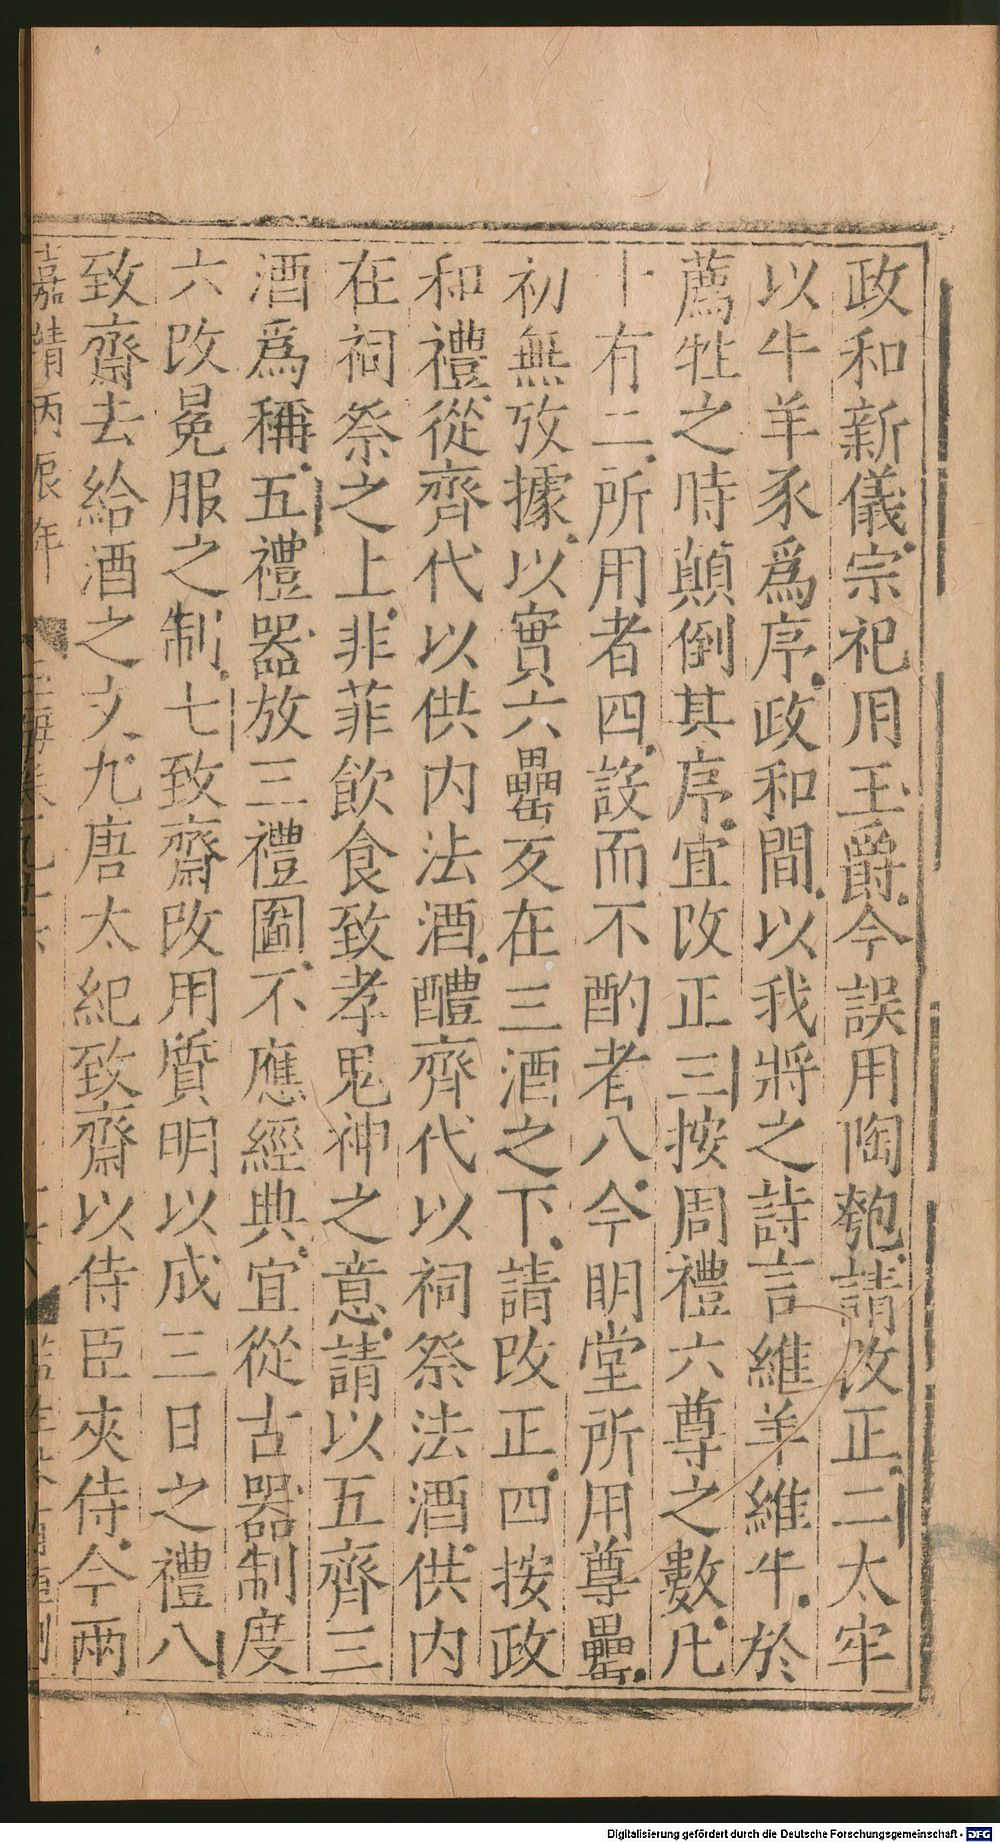 政和新儀宗祀用玉爵今誤用陶匏請攺正二太牢
以牛羊豕爲序政和間以我將之詩言維羊維牛於
薦牲之時顛倒其序宜攺正三按周禮六尊之數凡
十有二所用者四設而不酌者八今明堂所用尊罍
初無攷據以實六罍反在三酒之下請攺正四按政
和禮從齊代以供内法酒醴齊代以祠祭法酒供内
在祠祭之上非菲飲食致孝鬼神之意請以五齊三
酒爲稱五禮器放三禮圖不應經典宜從古器制度
六攺冕服之制七致齋攺用質明以成三日之禮八
致齋去給酒之文九唐太紀致齋以侍臣夾侍今兩
嘉靖丙辰年
Digitalisierung gefördert durch die Deutsche Forschungsgemeinschaft - DFG